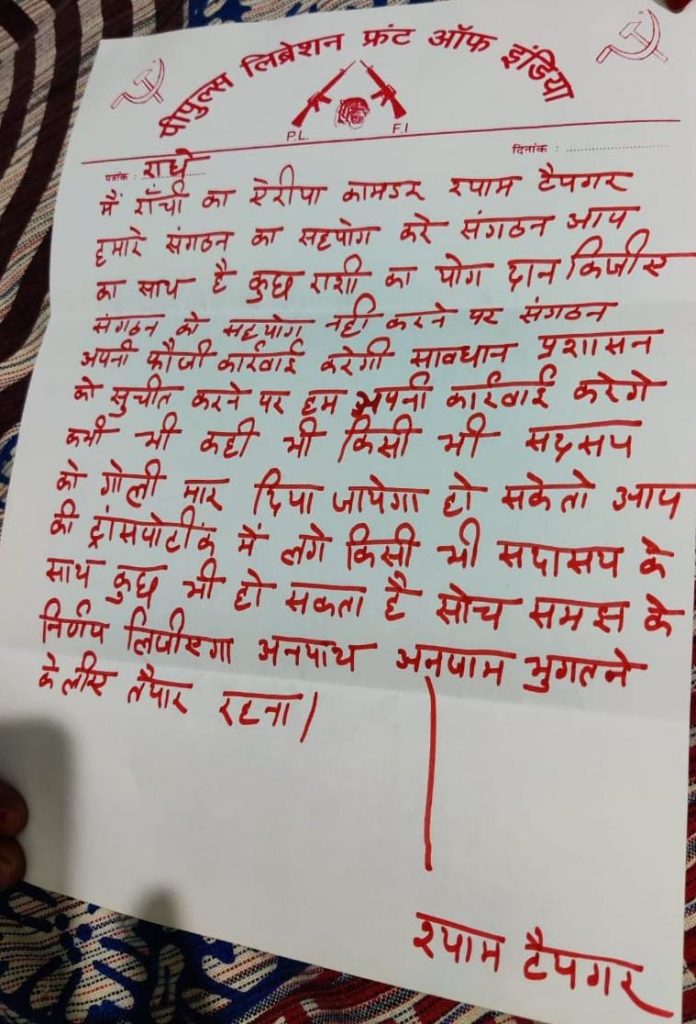 पीपुल्स लिब्रेशन फ्रंट ऑफ इंडिया
P.L. F.I
पत्रांक : राधे दिनांक :
मैं राँची का ऐरीपा कामडर श्पाम टैपगर
हमारे संगठन का सहपोग करे संगठन आप
का साथ है कुछ राशी का पोग दान किजीए
संगठन को सहपोग नही करने पर संगठन
अपनी फौजी कार्रवाई करेगी सावधान प्रशासन
को सुचीत करने पर हम अपनी कार्रवाई करेगे
कभी भी कही भी किसी भी सदसप
को गोली मार दिपा जापेगा हो सकेतो आप
की ट्रांसपोर्टीक में लगे किसी भी सदासप के
साथ कुछ भी हो सकता है सोच समझ के
निर्णप लिजीएगा अनपाथ अनजाम भुगतने
के लीए तैपार रहना।
श्पाम टैपगर